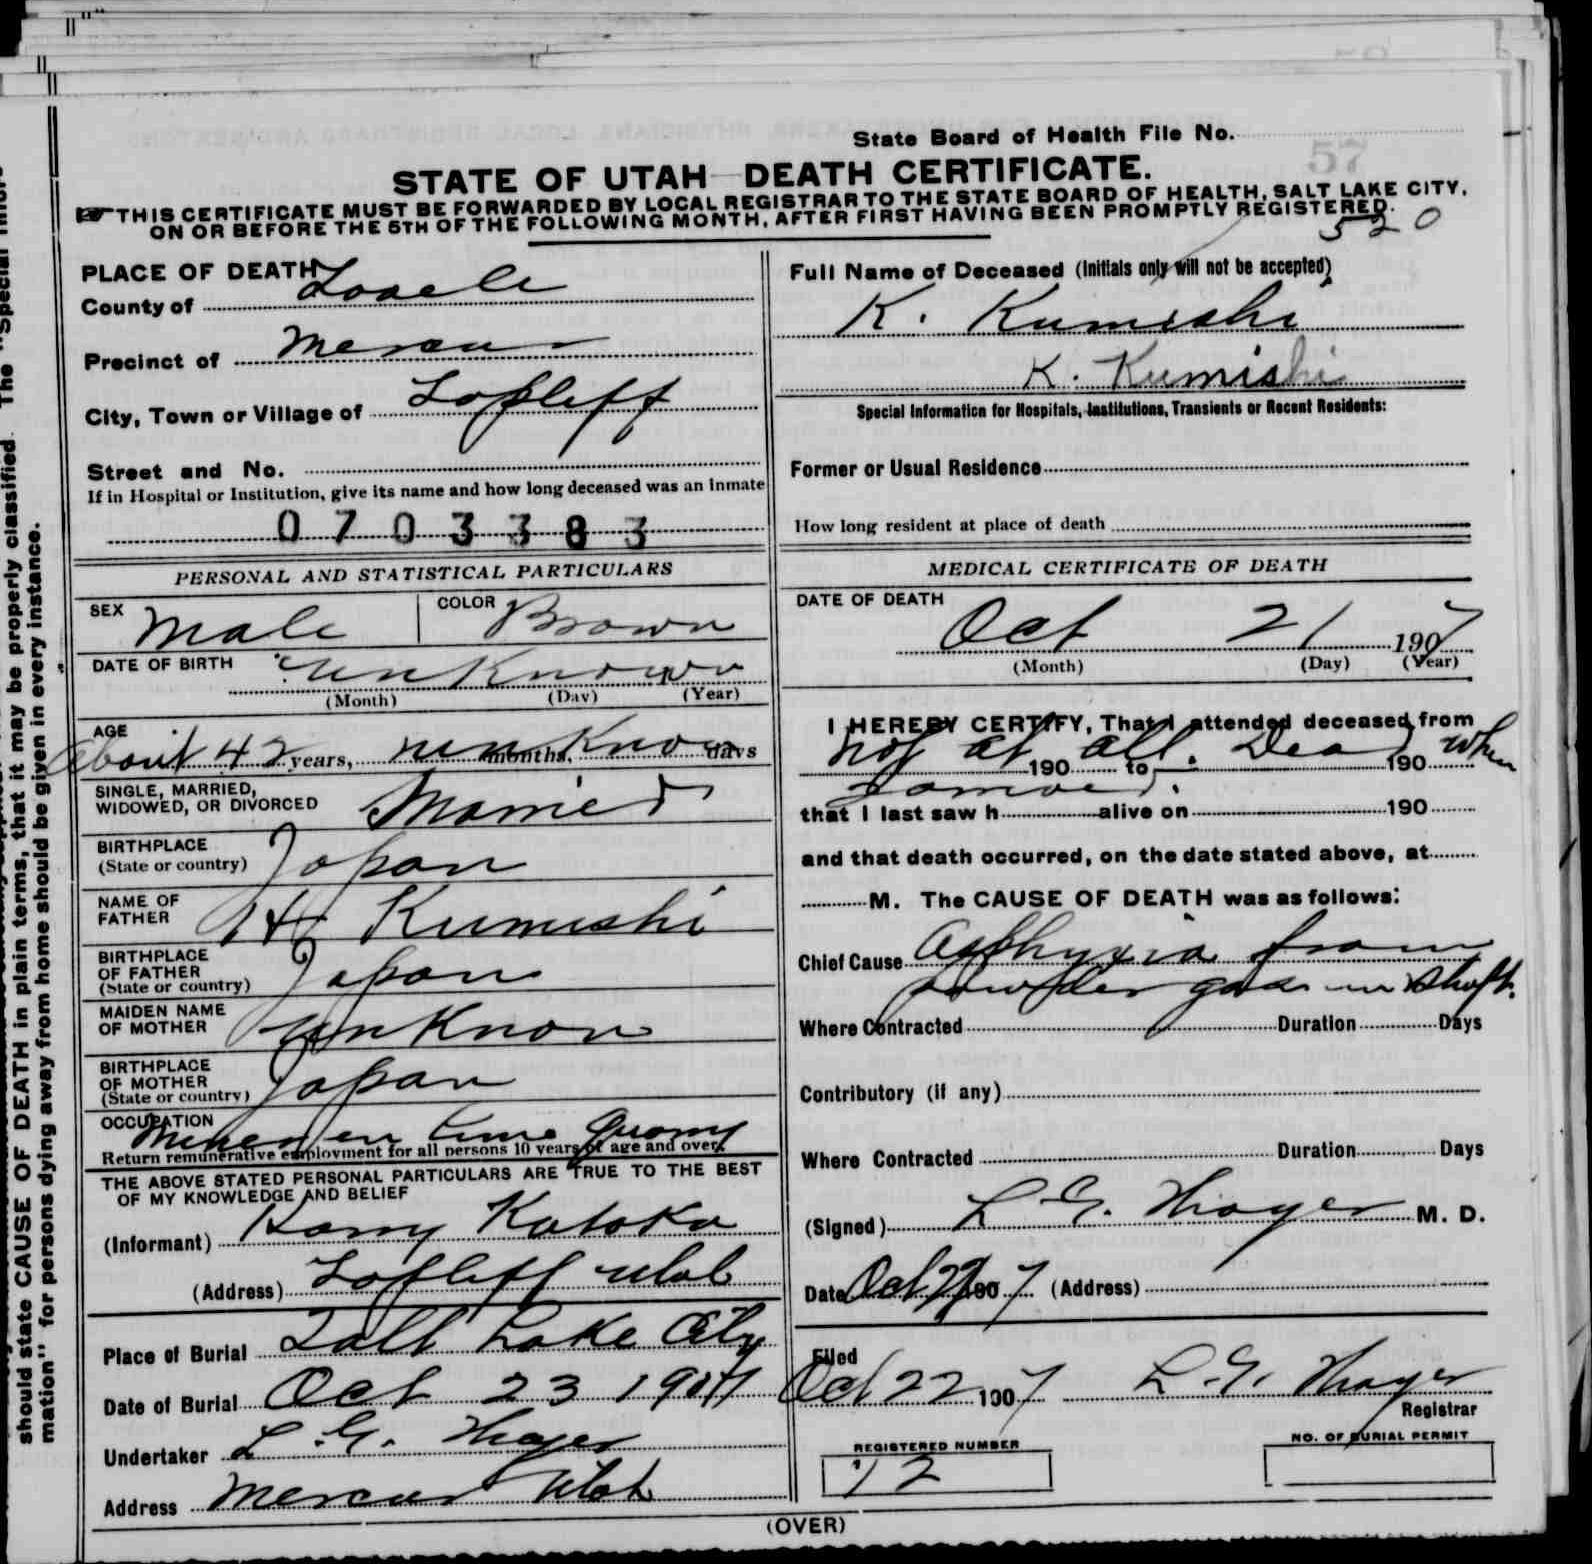 57
State Board of Health File No.
STATE OF UTAH—DEATH CERTIFICATE.
☞THIS CERTIFICATE MUST BE FORWARDED BY LOCAL REGISTRAR TO THE STATE BOARD OF HEALTH, SALT LAKE CITY,
ON OR BEFORE THE 5TH OF THE FOLLOWING MONTH, AFTER FIRST HAVING BEEN PROMPTLY REGISTERED.
520
PLACE OF DEATH
County of Tooele
Precinct of Mercur
City, Town or Village of Topliff
Street and No.
If in Hospital or Institution, give its name and how long deceased was an inmate
0703383
Full Name of Deceased (Initials only will not be accepted)
K. Kumishi
K. Kumishi
Special Information for Hospitals, Institutions, Transients or Recent Residents:
Former or Usual Residence
How long resident at place of death
PERSONAL AND STATISTICAL PARTICULARS
SEX Male COLOR Brown
DATE OF BIRTH unKnown
(Month) (Day) (Year)
AGE
About 42 years, unKnown months, days
SINGLE, MARRIED,
WIDOWED, OR DIVORCED Married
BIRTHPLACE
(State or country) Japan
NAME OF
FATHER H Kumishi
BIRTHPLACE
OF FATHER
(State or country) Japan
MAIDEN NAME
OF MOTHER unKnon
BIRTHPLACE
OF MOTHER
(State or country) Japan
OCCUPATION
Miner en Lime Quarry
Return remunerative employment for all persons 10 years of age and over.
THE ABOVE STATED PERSONAL PARTICULARS ARE TRUE TO THE BEST
OF MY KNOWLEDGE AND BELIEF
(Informant) Harry Kataka
(Address) Topliff Utah
Place of Burial Salt Lake City
Date of Burial Oct 23 1907
Undertaker L. G. Thayer
Address Mercur Utah
MEDICAL CERTIFICATE OF DEATH
DATE OF DEATH
Oct 21 1907
(Month) (Day) (Year)
I HEREBY CERTIFY, That I attended deceased from
not at all. Dead when
190 to 190
that I last saw h alive on 190
and that death occurred, on the date stated above, at
M. The CAUSE OF DEATH was as follows:
Chief Cause Asphyxia from
powder gas in shaft.
Where Contracted Duration Days
Contributory (if any)
Where Contracted Duration Days
(Signed) L G. Thayer M. D.
Date Oct 22 1907 (Address)
Filed
Oct 22 1907 L. G. Thayer
Registrar
REGISTERED NUMBER
12
NO. OF BURIAL PERMIT
(OVER)
should state CAUSE OF DEATH in plain terms, that it may be properly classified. The "Special Infor-
mation" for persons dying away from home should be given in every instance.